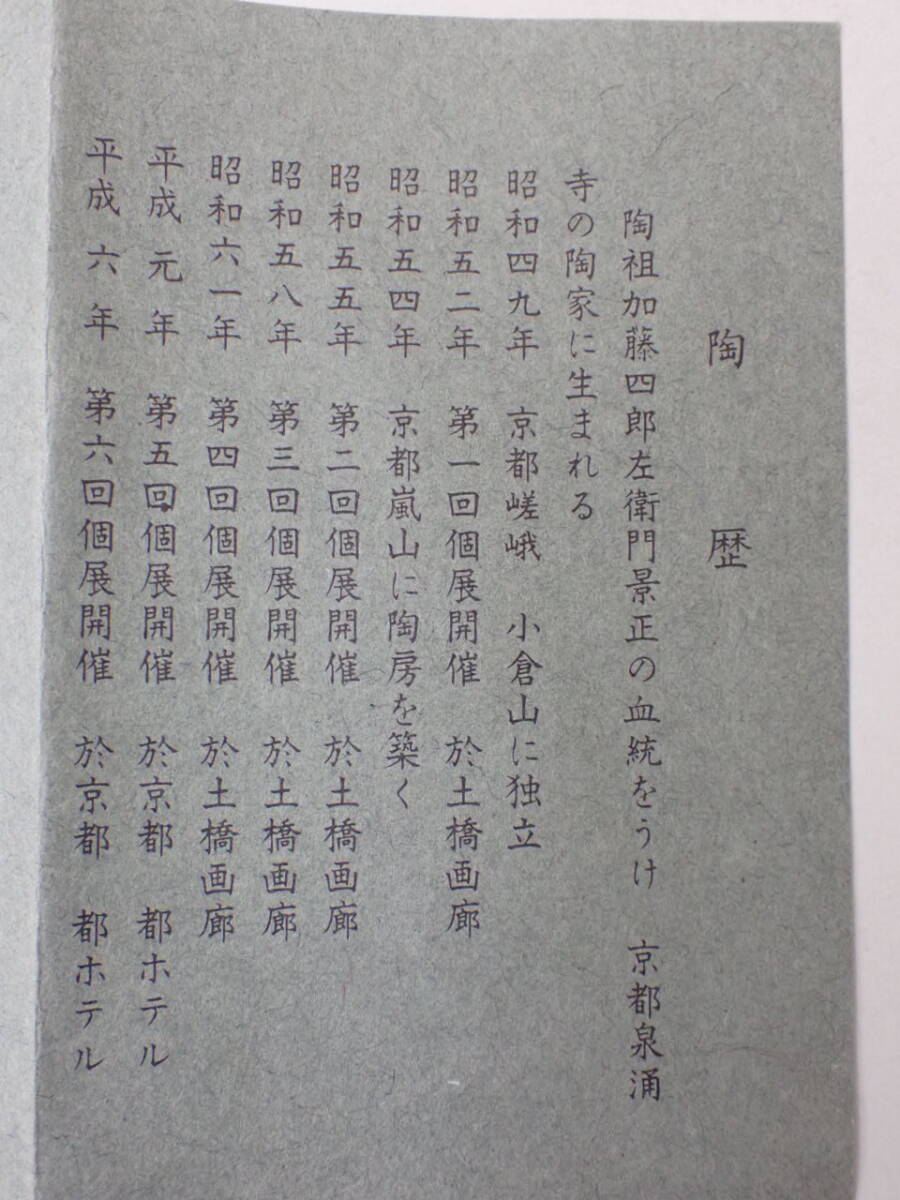 陶歴
陶祖加藤四郎左衛門景正の血統をうけ 京都泉涌
寺の陶家に生まれる
昭和四九年 京都嵯峨 小倉山に独立
昭和五二年 第一回個展開催 於土橋画廊
昭和五四年 京都嵐山に陶房を築く
昭和五五年 第二回個展開催 於土橋画廊
昭和五八年 第三回個展開催 於土橋画廊
昭和六一年 第四回個展開催 於土橋画廊
平成元年 第五回個展開催 於京都 都ホテル
平成六年 第六回個展開催 於京都 都ホテル